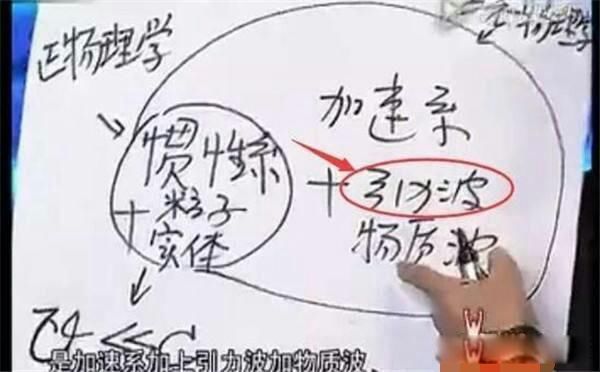 正物理学
物理学
加速系
惯性系
+引力波
+粒子
物质波
实体
<<C
是加速系加上引力波加物质波、